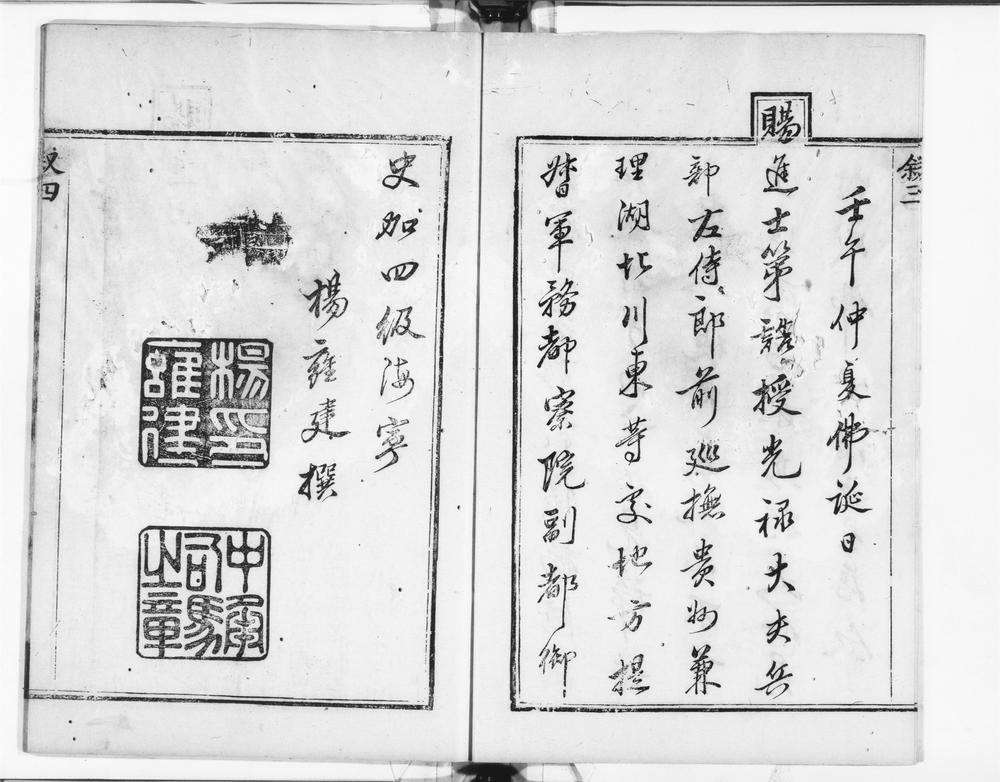 敘三
壬午仲夏佛誕日
賜進士第誥授光祿大夫兵
部左侍郎前巡撫貴州兼
理湖北川東等處地方提
督軍務都察院副都御
史加四級海寧
楊雍建撰
楊印雝建
四